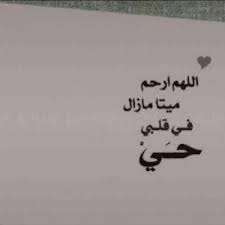 اللهم ارحم
ميتا مازال
في قلبي
حَيْ